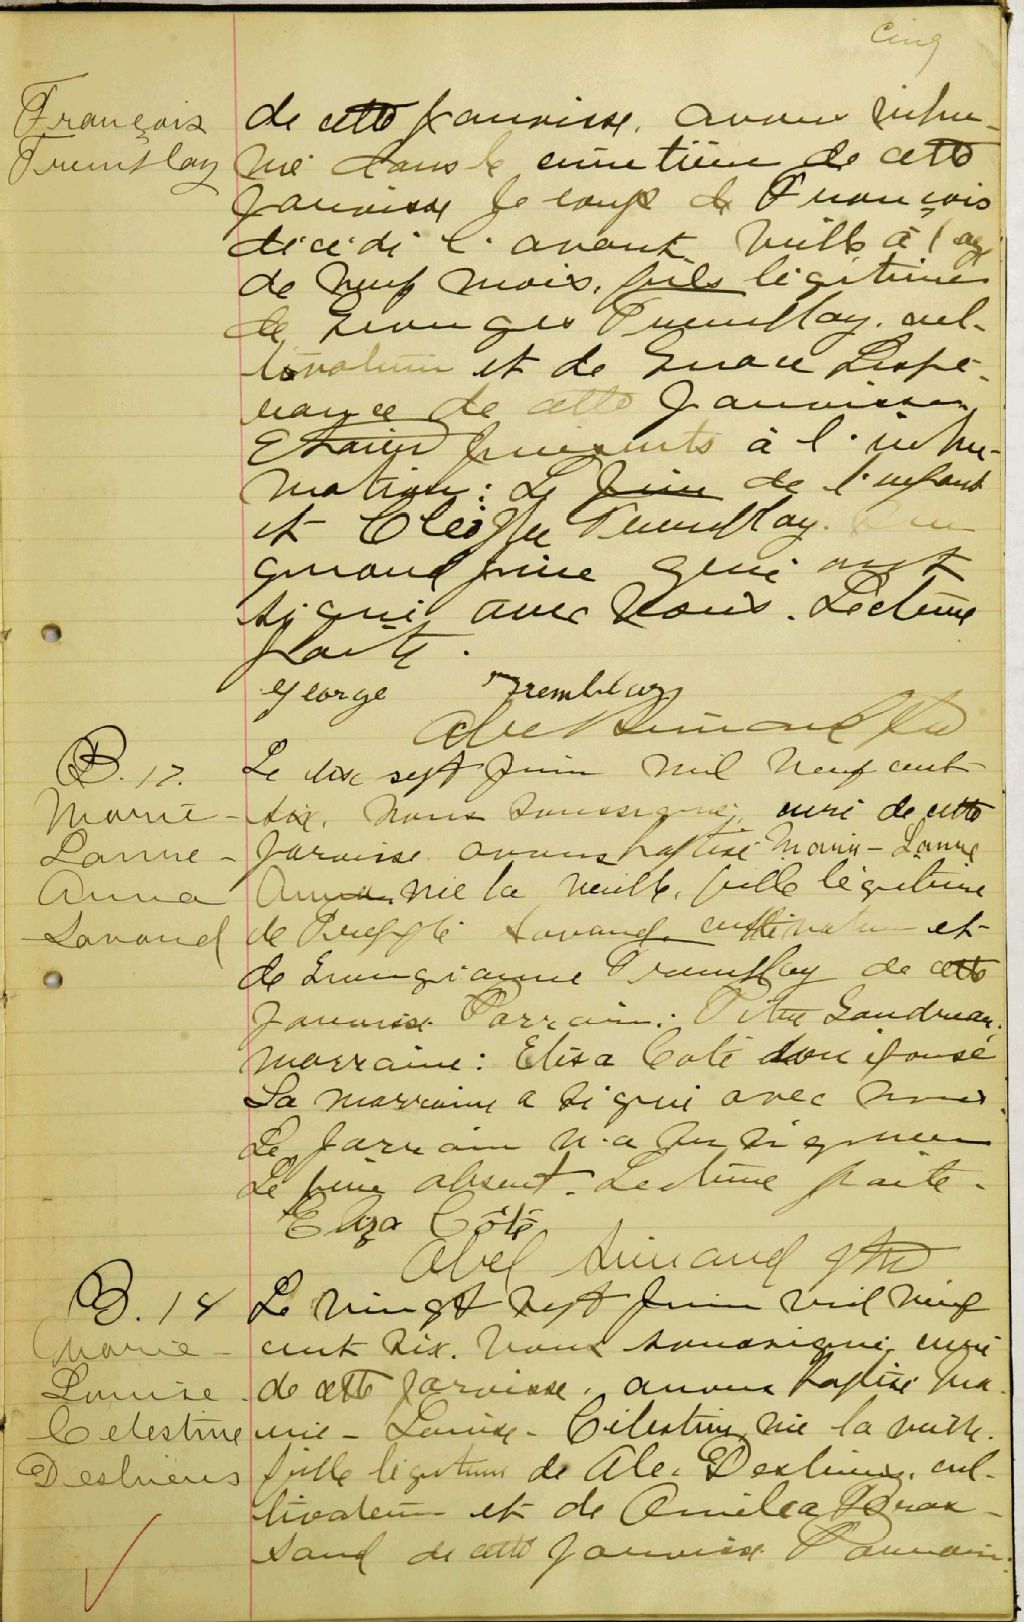 Cinq
François
Tremblay
de cette paroisse, avons inhu-
mé dans le cimetière de cette
paroisse le corps de François
décédé l'avant veille à l'age
de neuf mois, fils légitime
de Georges Tremblay, cul-
tivateur et de Grace Lespé-
rance de cette paroisse.
Etaient présents à l'inhu-
mation: Le père de l'enfant
et Cléophe Tremblay.
grand père qui ont
signé avec nous. Lecture
faite.
George Tremblay
Abel Simard Ptre
B. 17.
Marie -
Laure -
Anna
Savard
Le dix sept Juin mil neuf cent
six, nous soussigné, curé de cette
paroisse avons baptisé Marie - Laure
Anna, née la veille, fille légitime
de Savard, cultivateur et
de Georgianne Tremblay de cette
paroisse. Parrain: Pitre Gaudreau.
Marraine: Elisa Coté son épouse
La marraine a signé avec nous.
Le parrain n'a su signer
Le père absent. Lecture faite.
Eliza Côté
Abel Simard ptre
B. 18
Marie -
Louise
Celestine
Desbiens
Le vingt sept Juin mil neuf
cent six. nous soussigné, curé
de cette paroisse, avons baptisé Ma-
rie - Louise - Célestine, née la veille.
fille légitime de Alec Desbiens, cul-
tivateur et de Amélea Bras-
sard de cette paroisse. Parrain: